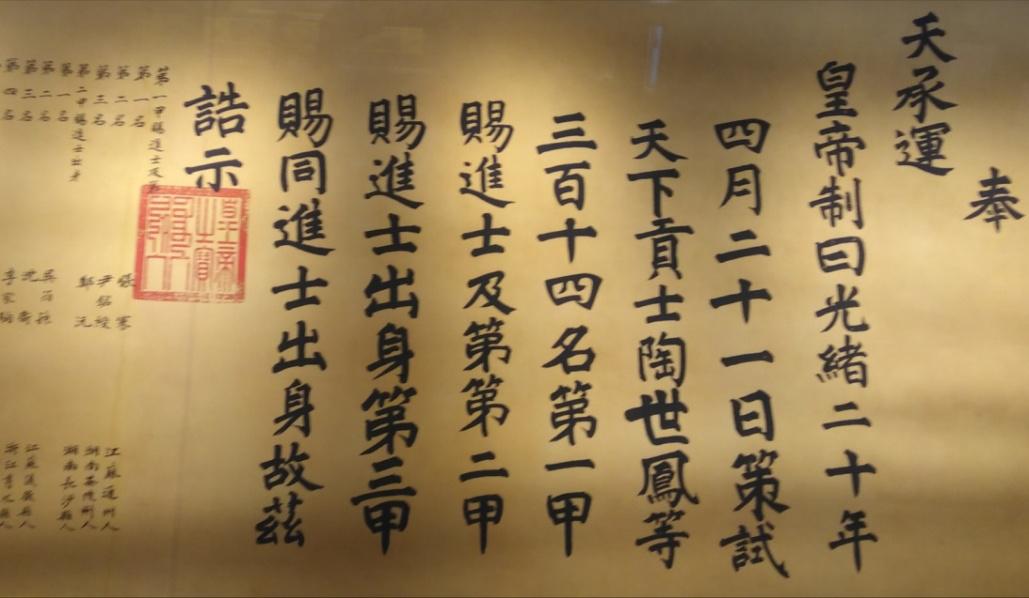 奉
天承運
皇帝制曰光緒二十年
四月二十一日策試
天下貢士陶世鳳等
三百十四名第一甲
賜進士及第第二甲
賜進士出身第三甲
賜同進士出身故茲
誥示
皇帝之寶
第一甲賜進士及第
第一名 張謇 江蘇通州人
第二名 尹銘綬 湖南茶陵州人
第三名 鄭沅 湖南長沙縣人
第二甲賜進士出身
第一名 吳筠孫 江蘇儀徵縣人
第二名 沈衛
第三名 李家駒
第四名